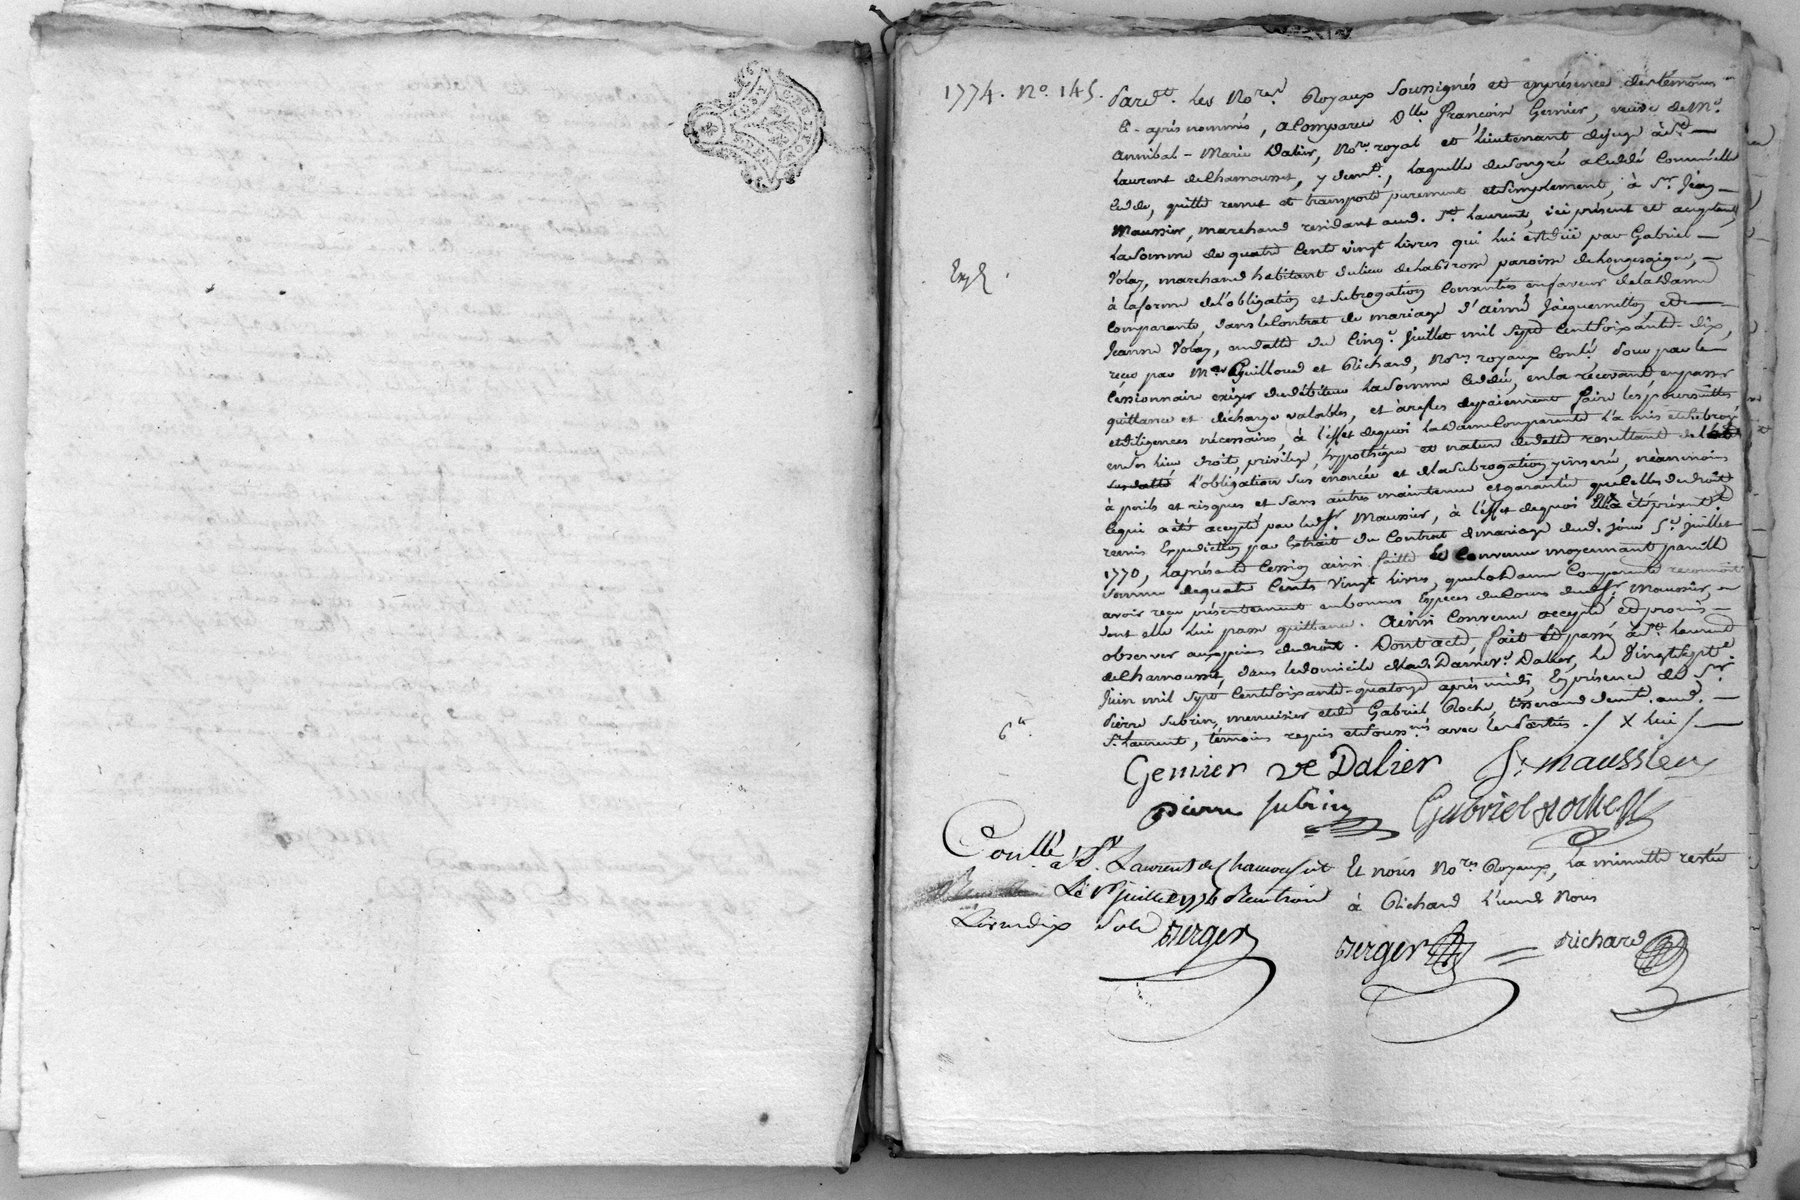 1774. No. 145.
Pardt. les Nores Royaux soussignés et en présence des témoins
ci-après nommés, a comparu Dlle françoise Gernier, veuve de Me
annibal-Marie Dalier, Nore royal et lieutenant de juge à St
Laurent de Chamousset, y demt., laquelle de son gré a cédé comme elle
cède, quitte remet et transporte purement et simplement, à Sr. Jean
Maussier, marchand residant aud. St. Laurent, ici présent et acceptant
la somme de quatre cent vingt livres qui lui est düe par Gabriel
Volay, marchand habitant du lieu de paroisse de Longessaigne,
à la forme de l'obligation et subrogation consenties en faveur de la Dame
comparante, dans le contrat de mariage d'aimé Jacquemetton et de
Jeanne Volay, en datte du cinq juillet mil sept cent soixante-dix,
reçu par Mes Guilloud et Richard, Nores royaux pour par le
cessionnaire exiger du débiteur la somme cédée, en la recevant en passer
quittance et décharge valables, et à refus de paiement faire les poursuittes
et diligences nécessaires, à l'effet de quoi la Dame comparante l'a mis et subrogé
en ses lieu droit, privilege, hypothéque et nature de dette resultant de
l'obligation sus énoncée et de la subrogation y inserée, néanmoins
à perils et risques et sans autre maintenue et garantie que celles de droit
ce qui a été accepté par led. Sr. Maussier, à l'effet de quoi a été présentt.
remis Expedition par Extrait du contrat de mariage dud. jour 5e juillet
1770, la présente cession ainsi faitte et convenue moyennant pareille
somme de quatre cents vingt livres, que lad. Dame comparante reconnoit
avoir reçu présentement en bonnes Especes du cours dud. Sr. Maussier,
dont elle lui passe quittance. Ainsi convenu accepté et promis
observer aux peines de droit. Dont acte, fait et passé à St. Laurent
de Chamousset, dans le domicile de lad. Dame ve. Dalier, le vingt sept
Juin mil sept cent soixante-quatorze après midi, En présence de Srs.
Pierre Subrin, menuisier et de Gabriel Roche, tisserand demt. aud.
St. Laurent, témoins requis et souss.nés avec les parties ./ X lui /
Gernier ve Dalier J. maussier
pierre subrin Gabriel roche
Conllé à St Laurent de Chamousset Et nous Nores Royaux, la minutte restée
Le juillet 1774 à Richard l'un de Nous
Livre dix sols Berger Berger Richard